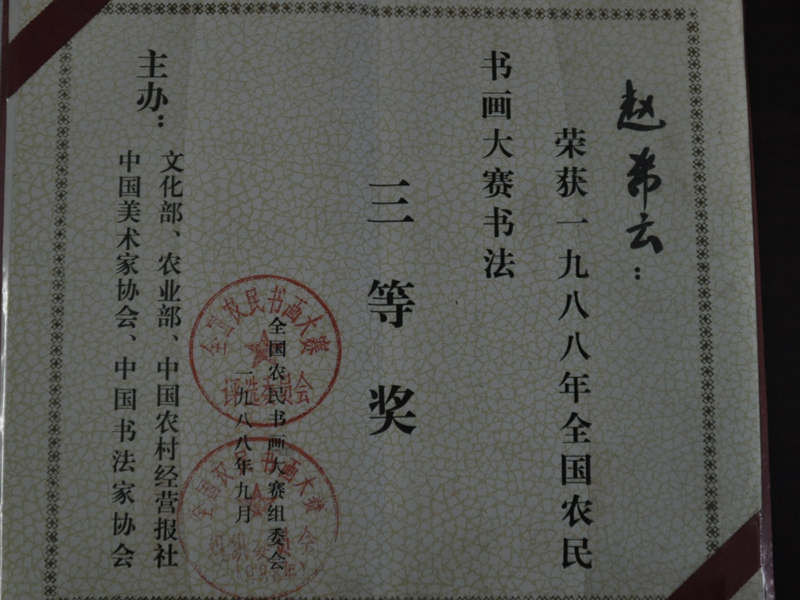 赵希云：
荣获一九八八年全国农民
书画大赛书法
三等奖
全国农民书画大赛组委会
一九八八年九月
全国农民书画大赛
评选委员会
全国农民书画大赛
组织委员会
主办：
文化部、农业部、中国农村经营报社
中国美术家协会、中国书法家协会